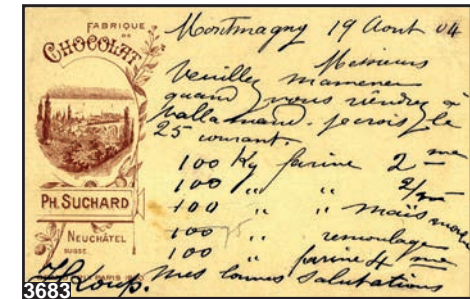 FABRIQUE
DE
CHOCOLAT
PH. SUCHARD
NEUCHÂTEL
SUISSE
Montmagny 19 Aout 04
Messieurs
Veuillez m'amener
quand vous viendrez à
Vallamand. je crois le
25 courant.
100 Kg farine 2 me
100 " " 2/me
100 " " maïs moulu
100 " remoulage
100 " farine 4 me
mes bonnes salutations
Loup.
3683